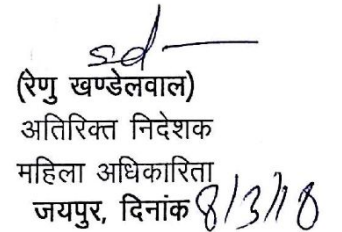 sd —
(रेणु खण्डेलवाल)
अतिरिक्त निदेशक
महिला अधिकारिता
जयपुर, दिनांक 8/3/18